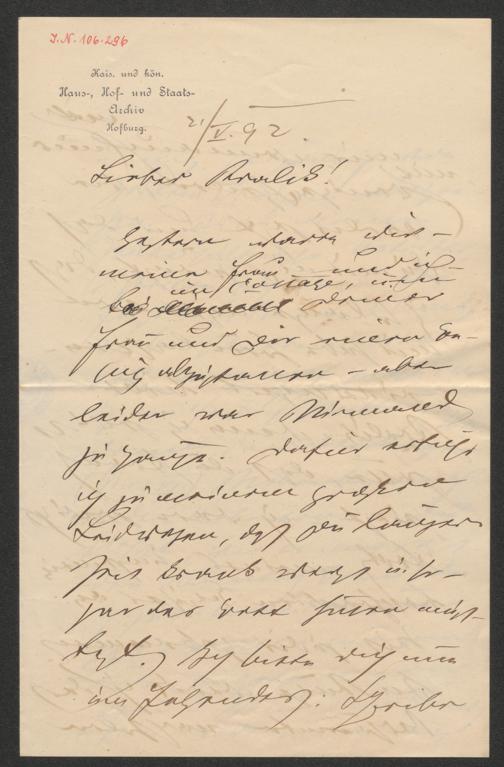 I.N. 106.296
Kais. und kön.
Haus-, Hof- und Staats-
Archiv
Hofburg.
21/V. 92.
Lieber Kralik!
Gestern waren wir –
meine Frau und ich –
in Cottage, um
bei deiner
Frau und Dir einen Be-
such abzustatten – aber
leider war Niemand
zu Hause. Dafür erfuhr
ich zu meinem großen
Leidwesen, daß Du längere
Zeit krank warst u. so-
gar das Bett hüten muß-
test. Ich bitte Dich nun
um Folgendes: Schreibe